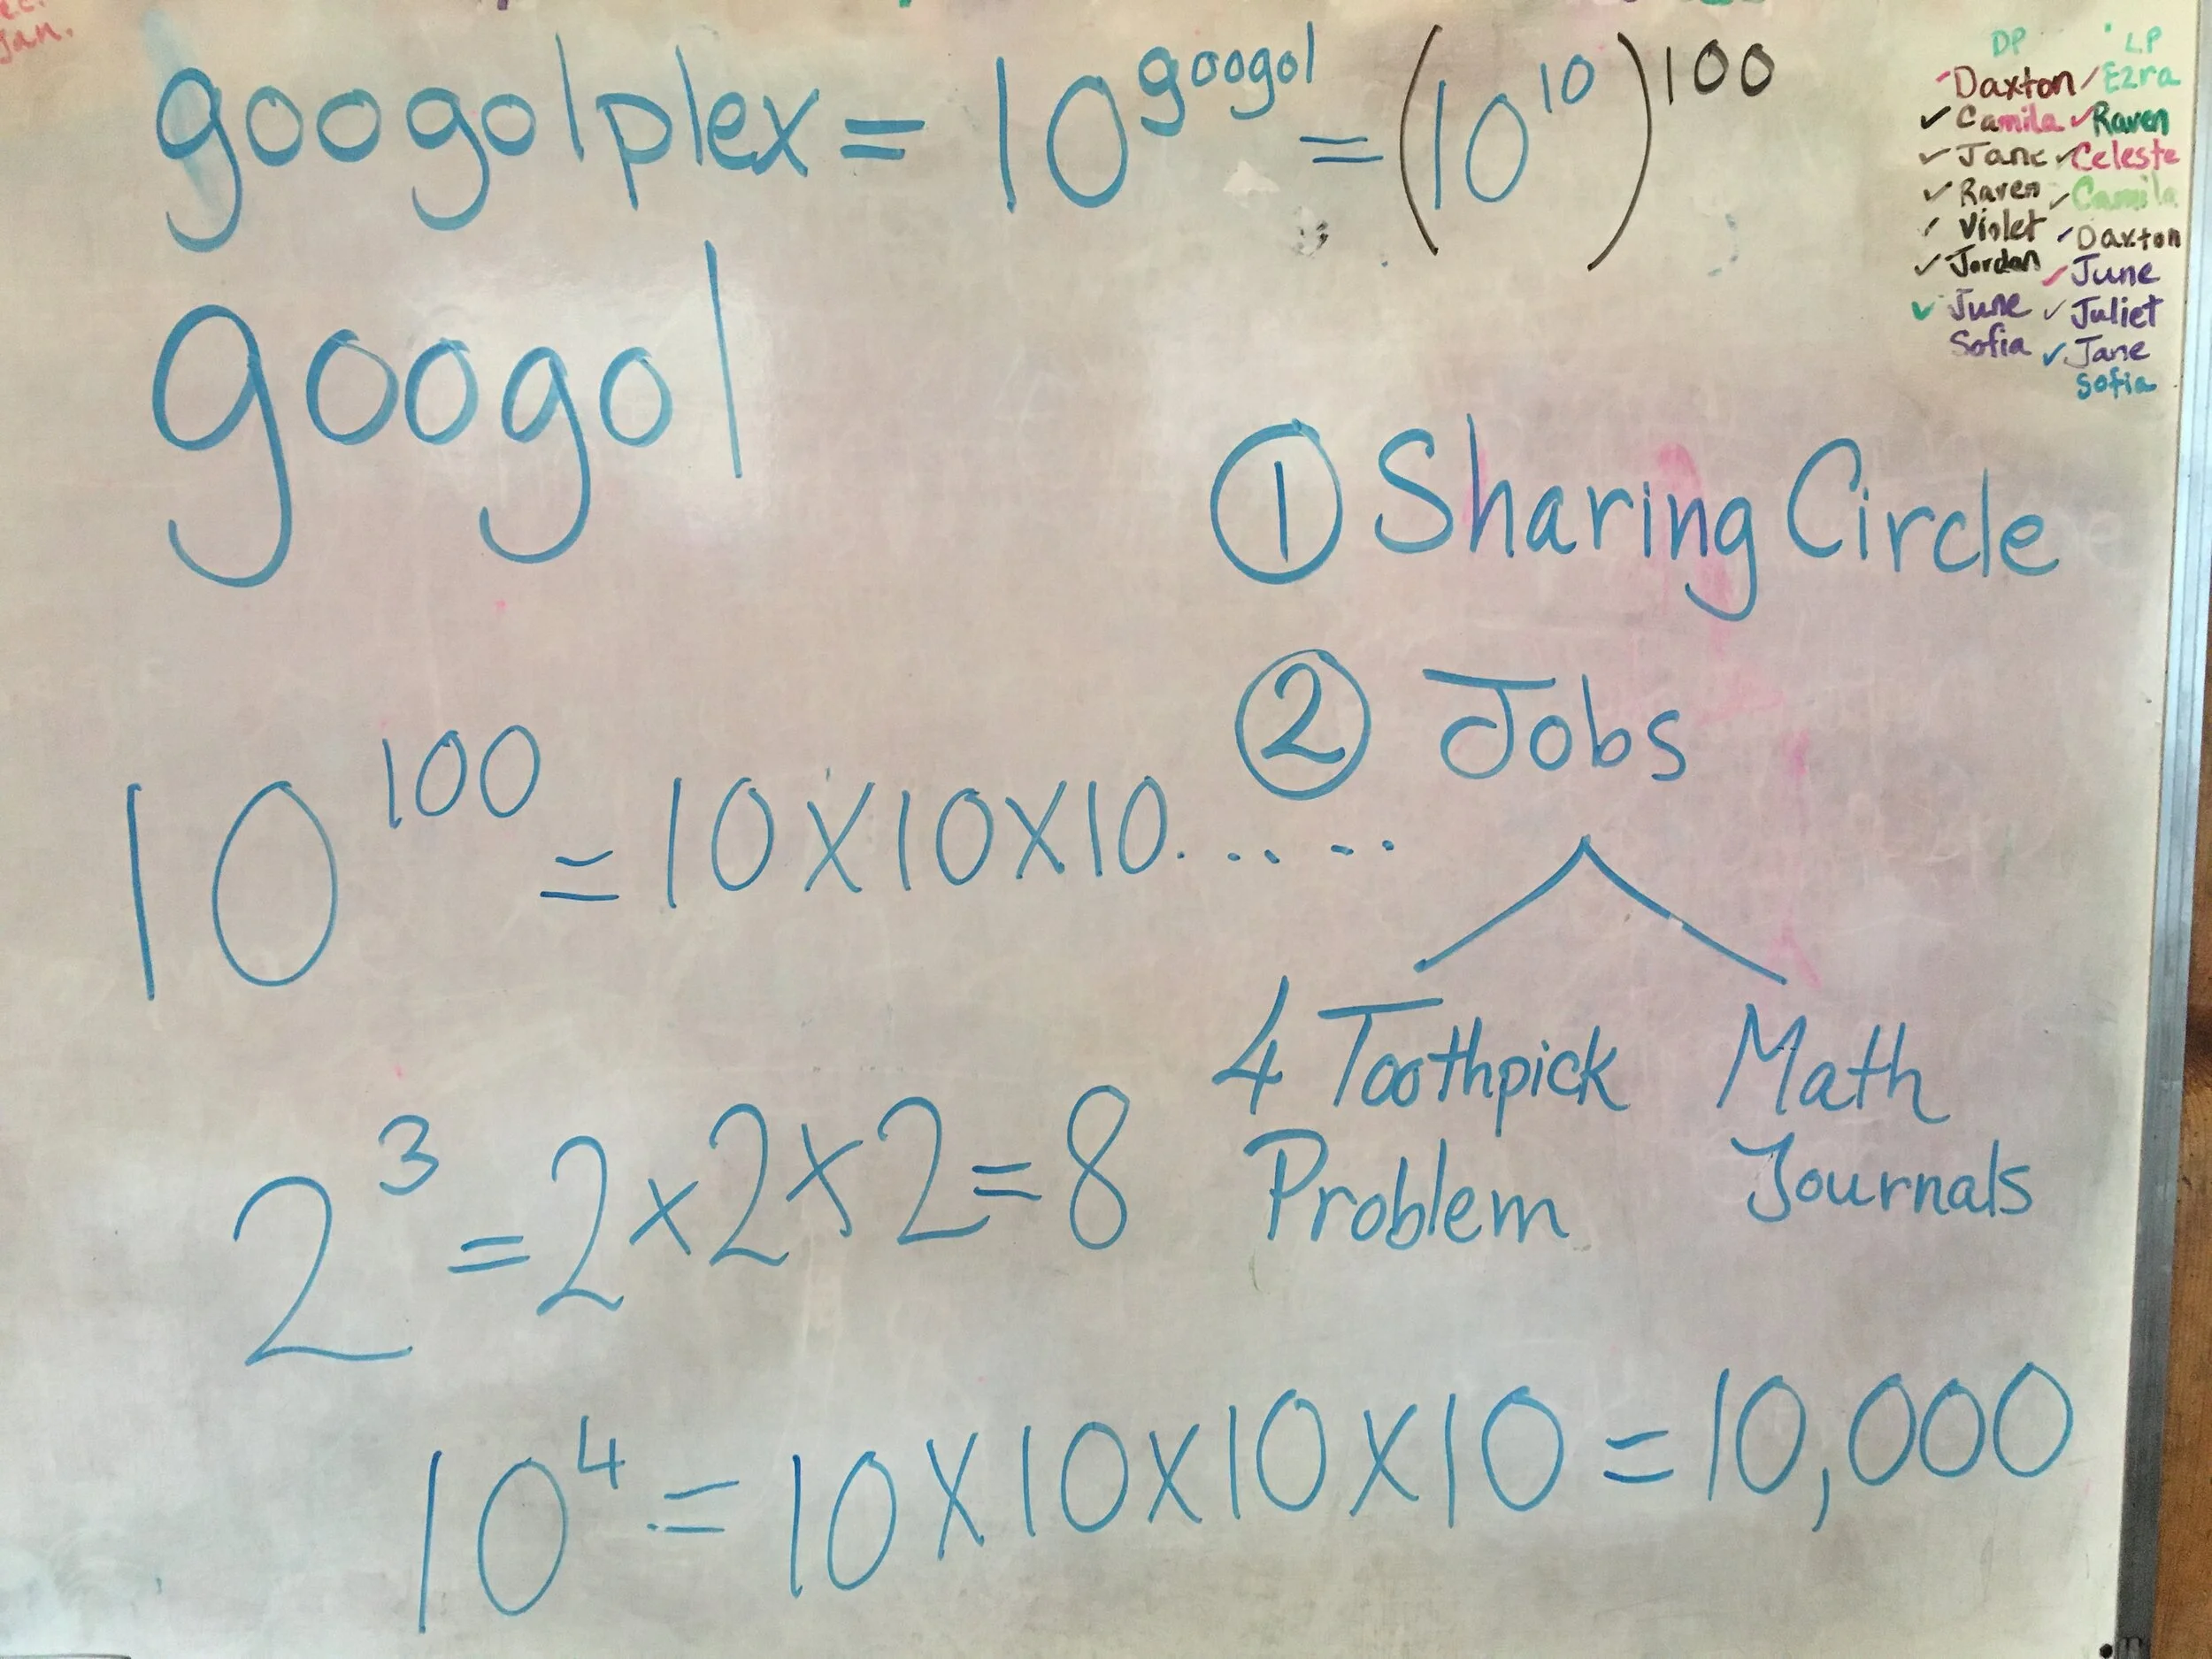 Jan.
googolplex = 10^googol = (10^10)^100
googol
DP LP
Daxton Ezra
✓ Camila ✓ Raven
✓ Jane ✓ Celeste
✓ Raven ✓ Camila
✓ Violet ✓ Daxton
✓ Jordan ✓ June
✓ June ✓ Juliet
Sofia ✓ Jane
Sofia
① Sharing Circle
② Jobs
4 Toothpick
Problem
Math
Journals
10^100 = 10 x 10 x 10.......
2^3 = 2 x 2 x 2 = 8
10^4 = 10 x 10 x 10 x 10 = 10,000